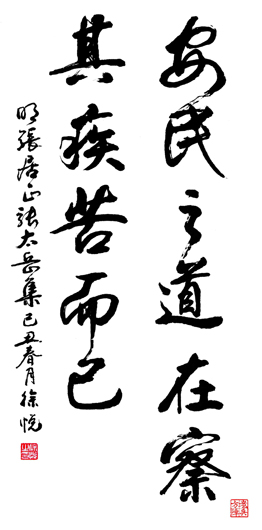 安民之道在察
其疾苦而已
明張居正張太岳集己丑春月徐悅